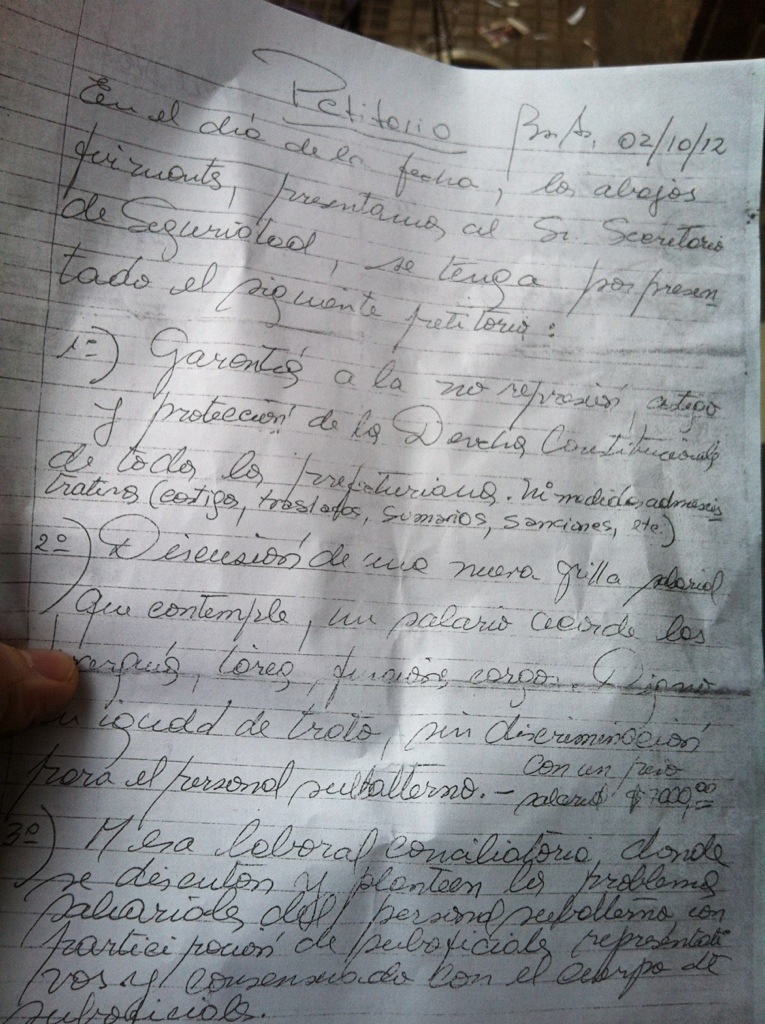 Petitorio Bs. As, 02/10/12
En el dia de la fecha, los abajos
firmantes, presentamos al Sr. Secretario
de Seguridad, se tenga por presen
tado el siguiente petitorio:
1º) Garantias a la no represión, castigo
y protección de los Derechos Constitucionales
de todos los prefecturianos. Ni medidas adminis
trativas (castigos, traslados, sumarios, sanciones, etc.)
2º) Discusión de una nueva grilla salarial
que contemple, un salario acorde los
, tareas, funciones, cargos. Digno
igualdd de trato, sin discriminación
para el personal subalterno. - con un piso
salarial $7000,00
3º) Mesa laboral conciliatoria, donde
se discutan y planteen los problemas
salariales del personal subalterno con
participación de suboficiales representati
vos y consensuado con el cuerpo de
suboficiales.